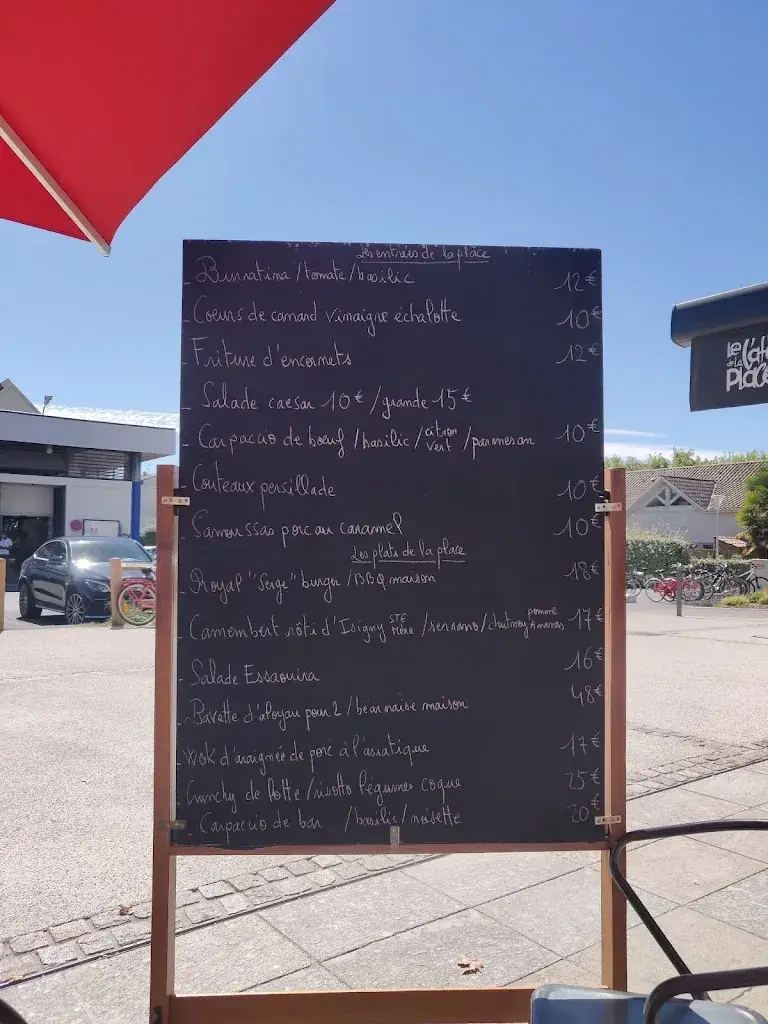 Les entrées de la place
- Burratina /tomate/basilic 12€
- Coeurs de canard vinaigre échalotte 10€
- Friture d'encornets 12€
- Salade caesar 10€ /grande 15€
- Carpaccio de boeuf /basilic/citron vert /parmesan 10€
- Couteaux persillade 10€
- Samoussas porc au caramel 10€
Les plats de la place
- Royal "Serge" burger /BBQ maison 18€
- Camembert rôti d'Isigny STE Mère /serrano/chutney pomme Ananas 17€
- Salade Essaouira 16€
- Bavette d'aloyau pour 2 /béarnaise maison 48€
- Wok d'araignée de porc à l'asiatique 17€
- Crunchy de lotte /risotto légumes coque 25€
- Carpaccio de bar /basilic/noisette 20€
Le Café
de la
Place